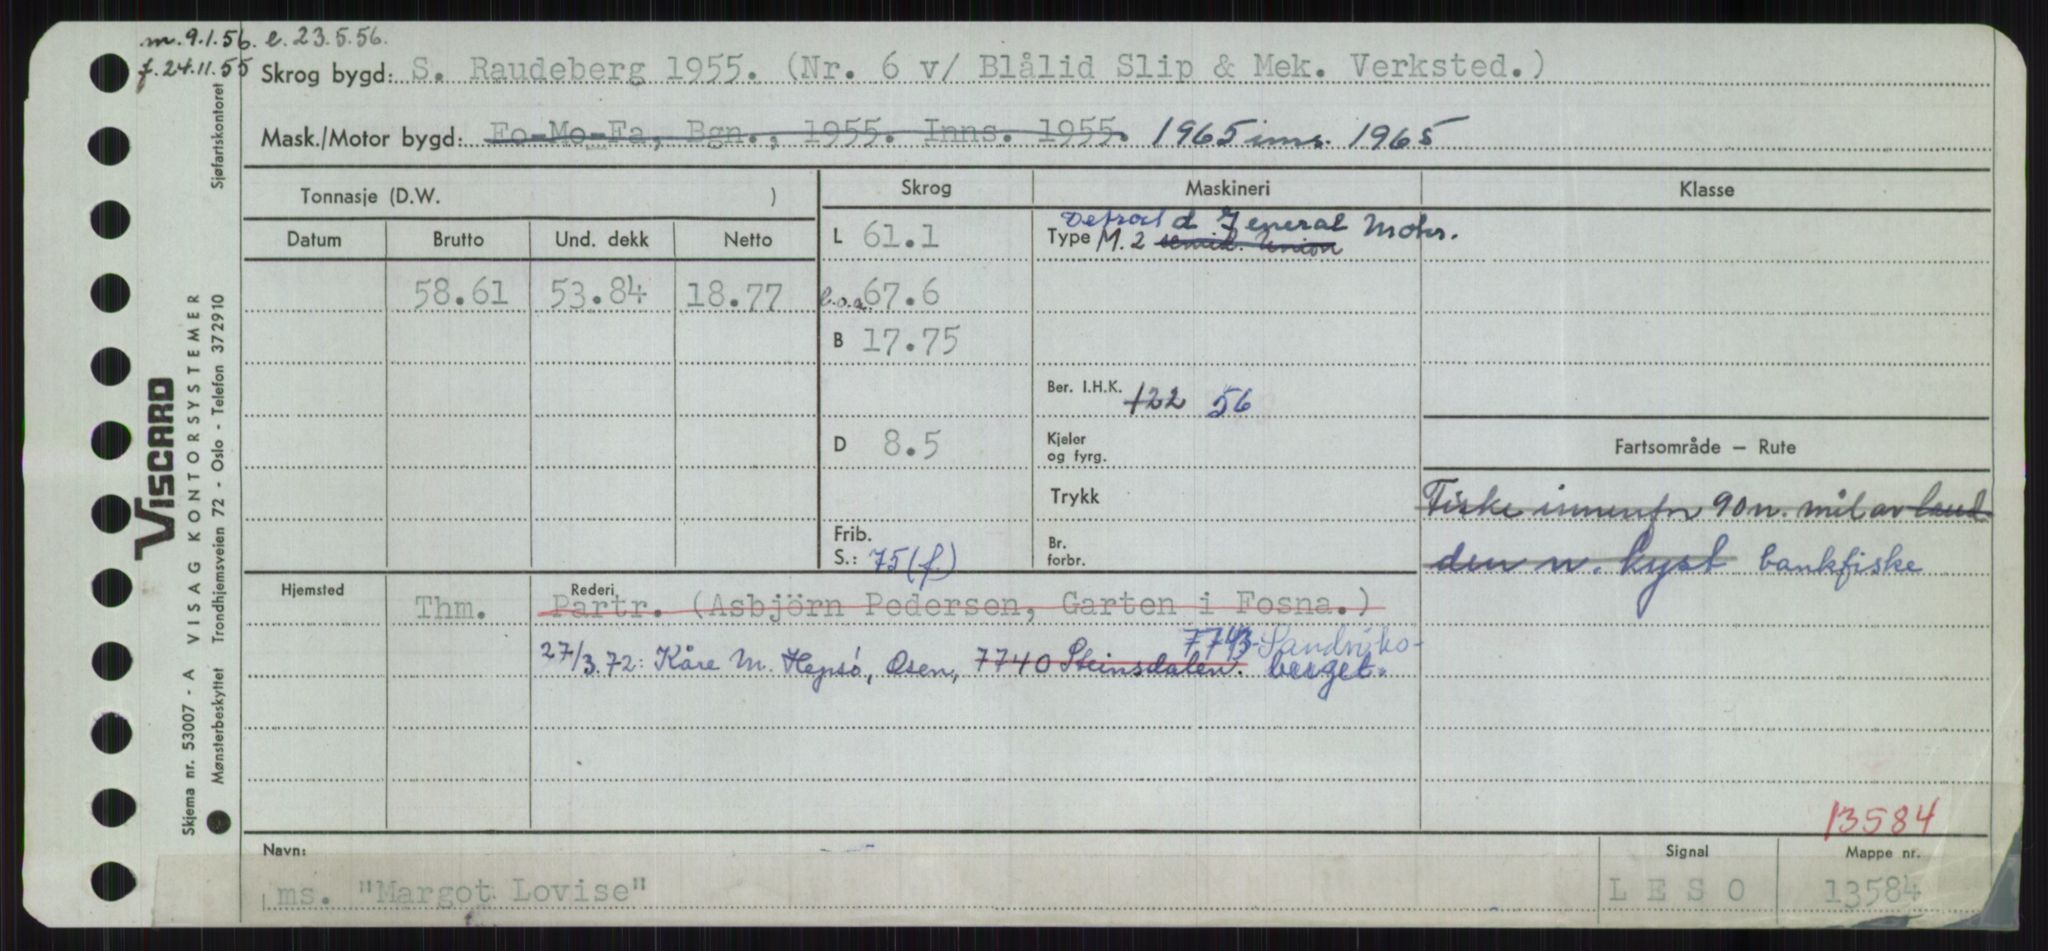 m. 9.1.56. e. 23.5.56.
f. 24.11.55 Skrog bygd: S. Raudeberg 1955. (Nr. 6 v/ Blålid Slip & Mek. Verksted.)
Mask./Motor bygd: Fo-Mo-Fa, Bgn., 1955. Inns. 1955. 1965 ins. 1965
Tonnasje (D.W. ) Skrog Maskineri Klasse
Datum Brutto Und. dekk Netto L 61.1 Detroit d General Motor.
Type M. 2 semid. Union
58.61 53.84 18.77 l.o.a. 67.6
B 17.75
Ber. I.H.K. 122 56
D 8.5 Kjeler
og fyrg. Fartsområde – Rute
Trykk Fiske innenfor 90 n. mil av land
Frib.
S.: 75 (f) Br.
forbr. den n. kyst bankfiske
Hjemsted Thm. Rederi Partr. (Asbjörn Pedersen, Garten i Fosna.)
27/3.72: Kåre M. Hepsø, Osen, 7740 Steinsdalen. 7743 Sandviks-
berget.
13584
Navn: ms. "Margot Lovise" Signal LESO Mappe nr. 13584
VISCARD
VISAG KONTORSYSTEMER
Skjema nr. 53007 - A
Mønsterbeskyttet Trondhjemsveien 72 - Oslo - Telefon 372910 Sjøfartskontoret